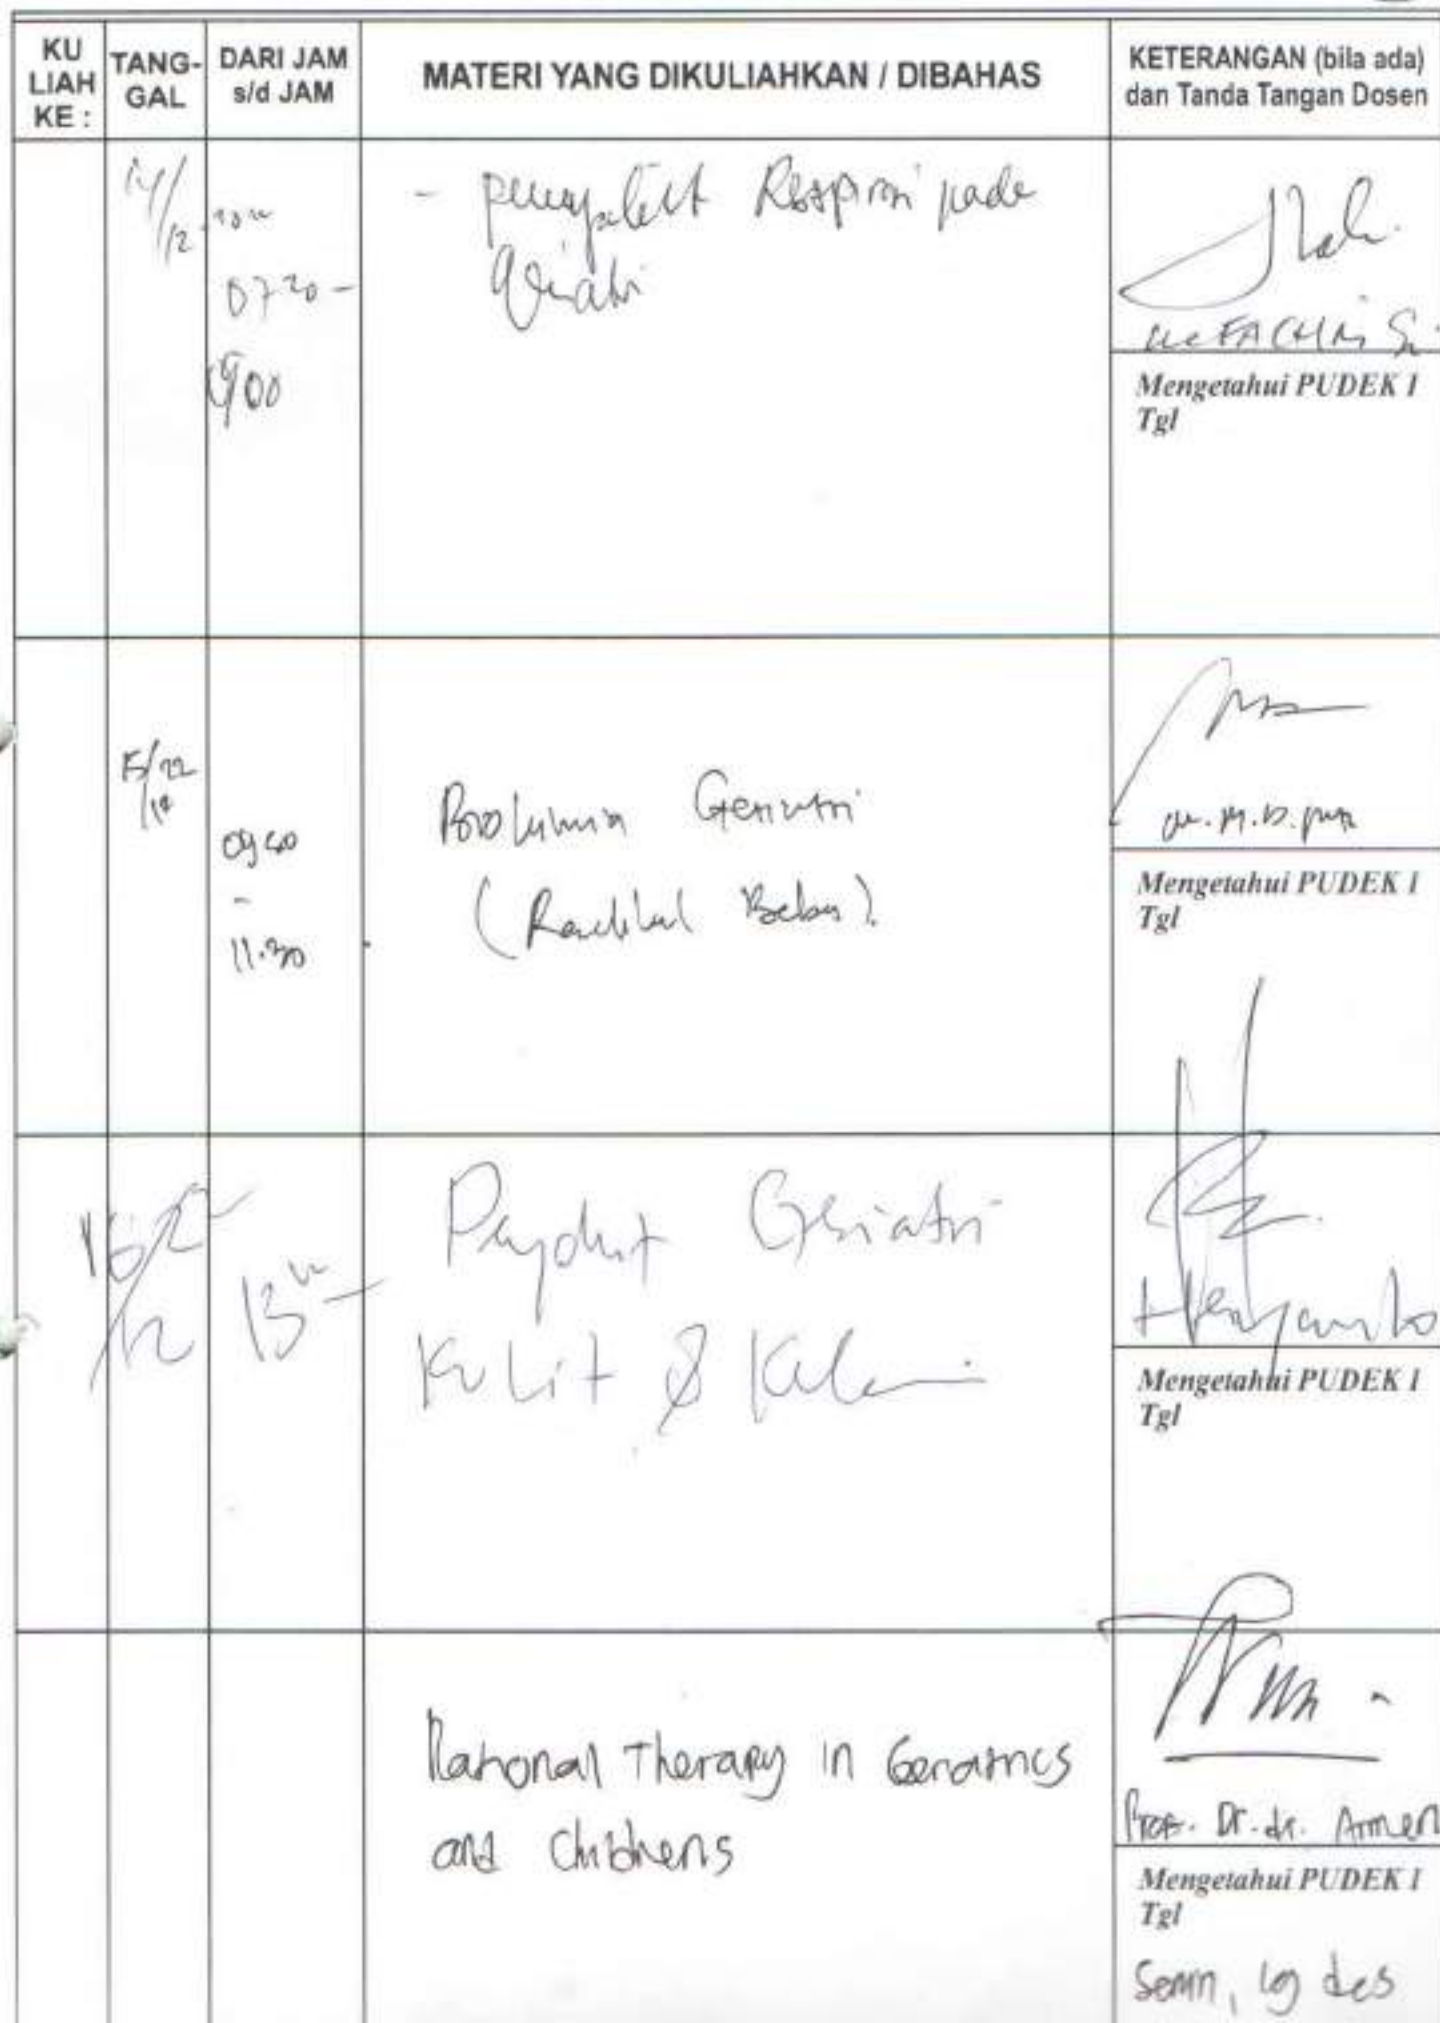 KU
LIAH
KE :
TANG-
GAL
DARI JAM
s/d JAM
MATERI YANG DIKULIAHKAN / DIBAHAS
KETERANGAN (bila ada)
dan Tanda Tangan Dosen
- penyakit Respirasi pada
Geriatri
0720 -
900
Mengetahui PUDEK I
Tgl
0940
-
11.30
Biokimia Geriatri
(Radikal Bebas).
Mengetahui PUDEK I
Tgl
Penyakit Geriatri
Kulit & Kelamin
Mengetahui PUDEK I
Tgl
Rational Therapy in Geriatrics
and Childrens
Prof. Dr. dr. Armen
Mengetahui PUDEK I
Tgl
Senin, 19 des